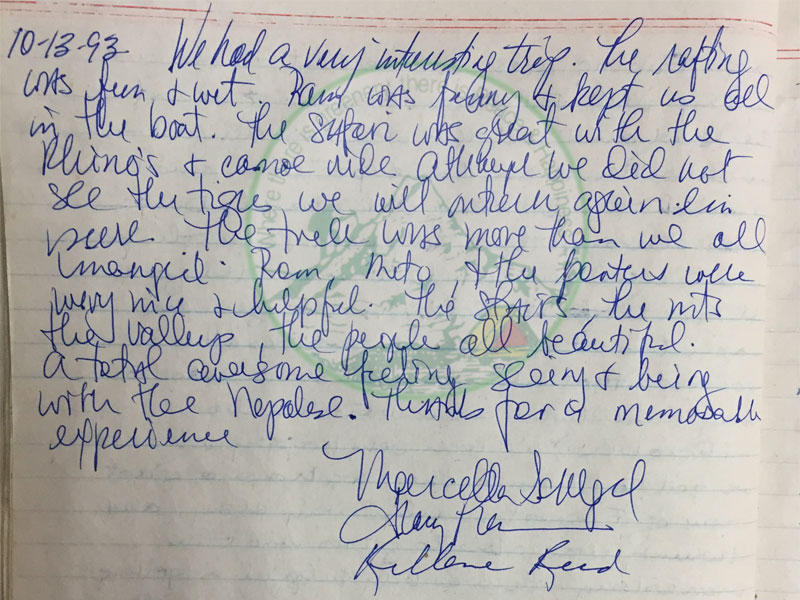 10-13-93 We had a very interesting trip. The rafting
was fun & wet. Ram was funny & kept us all
in the boat. The safari was great with the
Rhino's & canoe ride although we did not
see the tigers we will return again
The trek was more than we all
imangied. Ram, Moto, & the porters were
very nice & helpful. The stairs, the mts
the valleys, the people all beautiful.
A total awesome feeling seeing & being
with the Nepalese. Thanks for a memorable
experience
Marcella
Reed